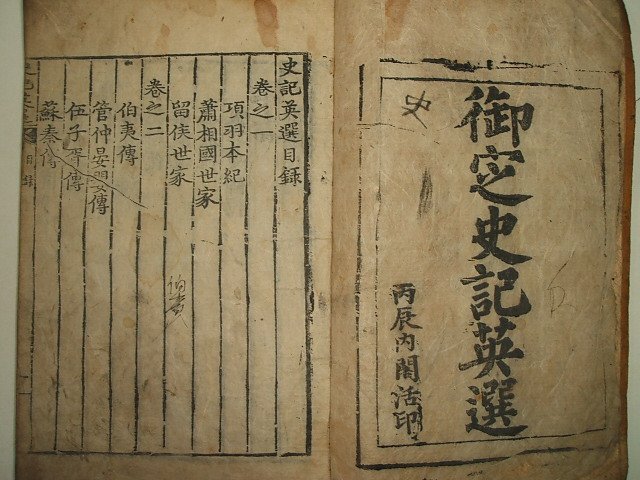 御定史記英選
丙辰內閣活印
史
史記英選目錄
卷之一
項羽本紀
蕭相國世家
留侯世家
卷之二
伯夷傳
管仲晏嬰傳
伍子胥傳
蘇秦傳
伯夷